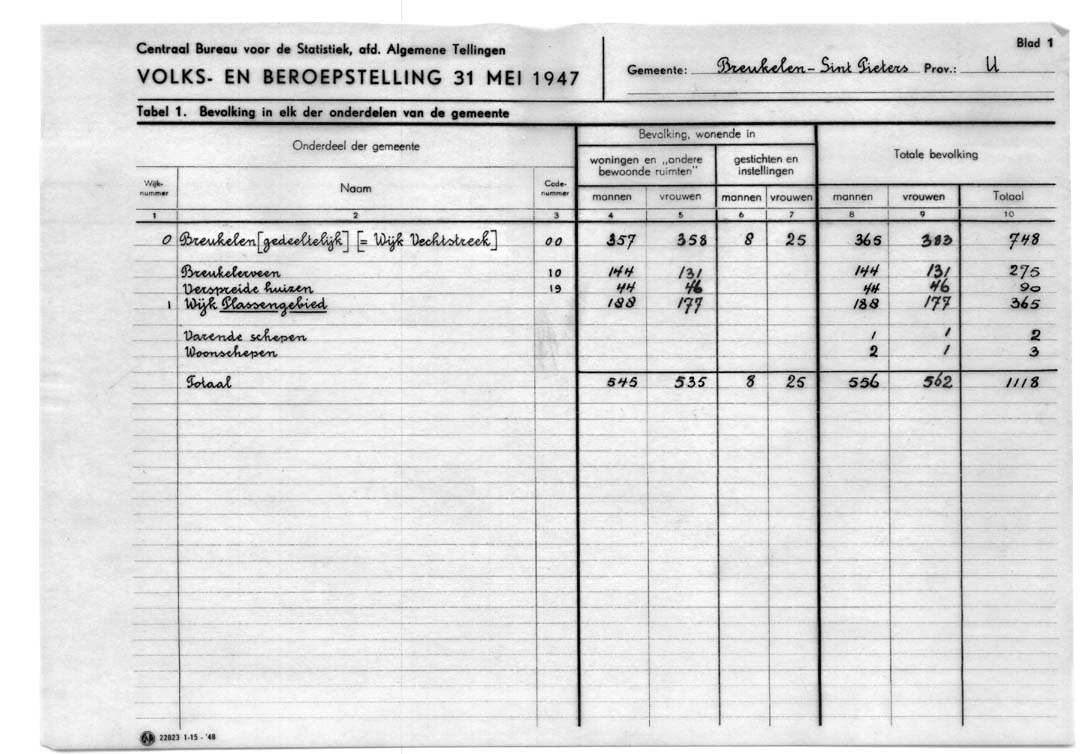 Centraal Bureau voor de Statistiek, afd. Algemene Tellingen
VOLKS- EN BEROEPSTELLING 31 MEI 1947
Gemeente: Breukelen-Sint Pieters Prov.: U
Blad 1
Tabel 1. Bevolking in elk der onderdelen van de gemeente
Onderdeel der gemeente
Bevolking, wonende in
Totale bevolking
woningen en „andere bewoonde ruimten"
gestichten en instellingen
Wijk-nummer Naam Code-nummer mannen vrouwen mannen vrouwen mannen vrouwen Totaal
1 2 3 4 5 6 7 8 9 10
0 Breukelen [gedeeltelijk] [= Wijk Vechtstreek] 00 357 358 8 25 365 383 748
Breukelerveen 10 144 131 144 131 275
Verspreide huizen 19 44 46 44 46 90
1 Wijk Plassengebied 188 177 188 177 365
Varende schepen 1 1 2
Woonschepen 2 1 3
Totaal 545 535 8 25 556 562 1118
22823 1-15-'48